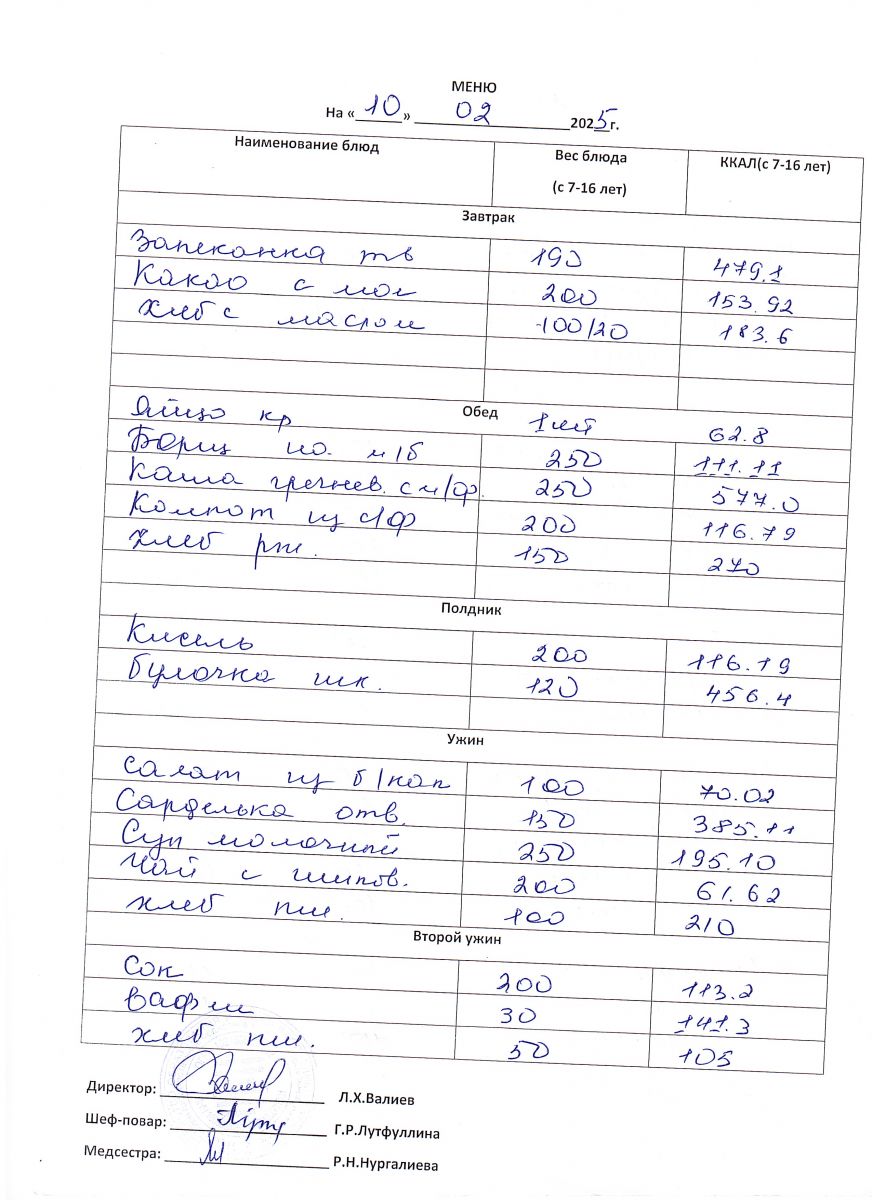 МЕНЮ
На «10» 02 2025г.
Наименование блюд Вес блюда (с 7-16 лет) ККАЛ(с 7-16 лет)
Завтрак
Запеканка тв 190 479.1
Какао с мол 200 153.92
Хлеб с маслом 100/20 183.6
Обед
Яйцо кр 1шт 62.8
Борщ на м/б 250 111.11
Каша гречнев. с м/ф. 250 577.0
Компот из с/ф 200 116.79
Хлеб рж. 150 270
Полдник
Кисель 200 116.19
Булочка шк. 120 456.4
Ужин
Салат из б/кап 100 70.02
Сарделька отв. 150 385.11
Суп молочный 250 195.10
Чай с шипов. 200 61.62
хлеб пш. 100 210
Второй ужин
Сок 200 113.2
Вафли 30 141.3
хлеб пш. 50 105
Директор: Л.Х.Валиев
Шеф-повар: Г.Р.Лутфуллина
Медсестра: Р.Н.Нургалиева